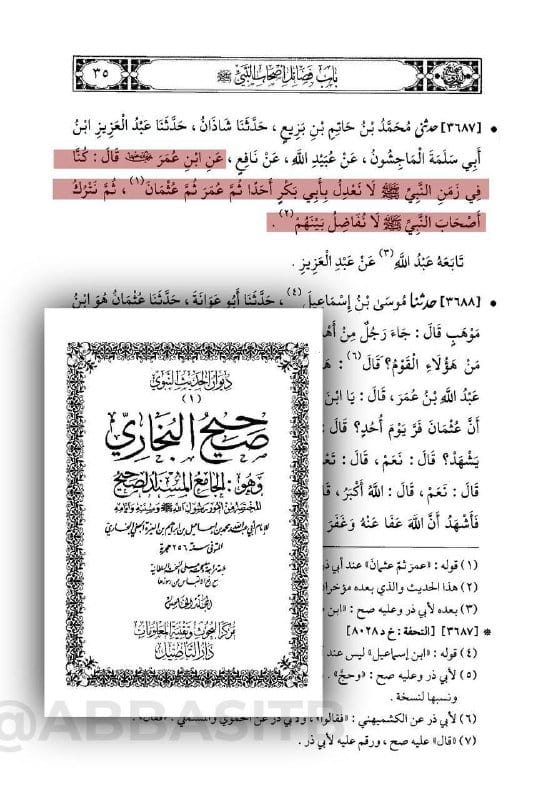 باب فضائل أصحاب النبي ﷺ
٣٥
• [٣٦٨٧] حدثني مُحَمَّدُ بْنُ حَاتِمِ بْنِ بَزِيعٍ ، حَدَّثَنَا شَاذَانُ ، حَدَّثَنَا عَبْدُ الْعَزِيزِ ابْنُ
أَبِي سَلَمَةَ الْمَاجِشُونُ ، عَنْ عُبَيْدِ اللَّهِ ، عَنْ نَافِعٍ ، عَنِ ابْنِ عُمَرَ قَالَ : كُنَّا
فِي زَمَنِ النَّبِيِّ ﷺ لَا نَعْدِلُ بِأَبِي بَكْرٍ أَحَدًا ثُمَّ عُمَرَ ثُمَّ عُثْمَانَ (١) ، ثُمَّ نَتْرُكُ
أَصْحَابَ النَّبِيِّ ﷺ لَا نُفَاضِلُ بَيْنَهُمْ (٢) .
تَابَعَهُ عَبْدُ اللَّهِ (٣) عَنْ عَبْدِ الْعَزِيزِ .
• [٣٦٨٨] حدثنا مُوسَى بْنُ إِسْمَاعِيلَ (٤) ، حَدَّثَنَا أَبُو عَوَانَةَ ، حَدَّثَنَا عُثْمَانُ هُوَ ابْنُ
مَوْهَبٍ قَالَ : جَاءَ رَجُلٌ مِنْ
مَنْ هَؤُلَاءِ الْقَوْمُ؟ قَالَ (٦) :
عَبْدُ اللَّهِ بْنُ عُمَرَ ، قَالَ : يَا ابْنَ
أَنَّ عُثْمَانَ فَرَّ يَوْمَ أُحُدٍ؟ قَالَ :
يَشْهَدْ؟ قَالَ : نَعَمْ ، قَالَ :
قَالَ : نَعَمْ ، قَالَ : اللَّهُ أَكْبَرُ ، قَالَ
فَأَشْهَدُ أَنَّ اللَّهَ عَفَا عَنْهُ وَغَفَرَ
ديوان الحديث النبوي
(١)
صحيح البخاري
وهو : الجامع المسند الصحيح
المختصر من أمور رسول الله ﷺ وسننه وأيامه
للإمام أبي عبد الله محمد بن إسماعيل بن إبراهيم بن المغيرة الجعفي البخاري
المتوفى سنة ٢٥٦ هجرية
المجلد الخامس
مركز البحوث وتقنية المعلومات
دار التأصيل
(١) قوله : «عمر ثم عثمان» عند أبي ذر
(٢) هذا الحديث والذي بعده مؤخران
(٣) بعده لأبي ذر وعليه صح : «ابن
* [٣٦٨٧] [التحفة : خ د ٨٠٢٨]
(٤) قوله : «ابن إسماعيل» ليس عند
(٥) لأبي ذر وعليه صح : «وحج» .
ونسبها لنسخة .
(٦) لأبي ذر عن الكشميهني : «فقالوا» ، ولأبي ذر عن الحموي والمستملي : «فقال» .
(٧) «قال» عليه صح ، ورقم عليه لأبي ذر .
@ABBASITR